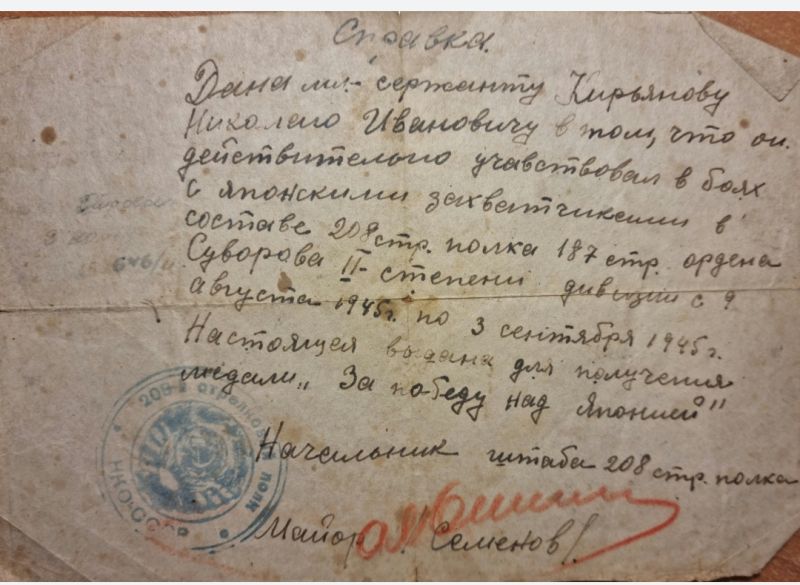 Справка.
Дана мл. сержанту Кирьянову
Николаю Ивановичу в том, что он
действительно учавствовал в боях
с японскими захватчиками в
составе 208 стр. полка 187 стр. ордена
Суворова II- степени дивизии с 9
августа 1945г. по 3 сентября 1945г.
Настоящая выдана для получения
медали „За победу над Японией"
Начальник штаба 208 стр. полка
Майор /Семенов/
208 стрелковый полк
НКО-СССР
646/11